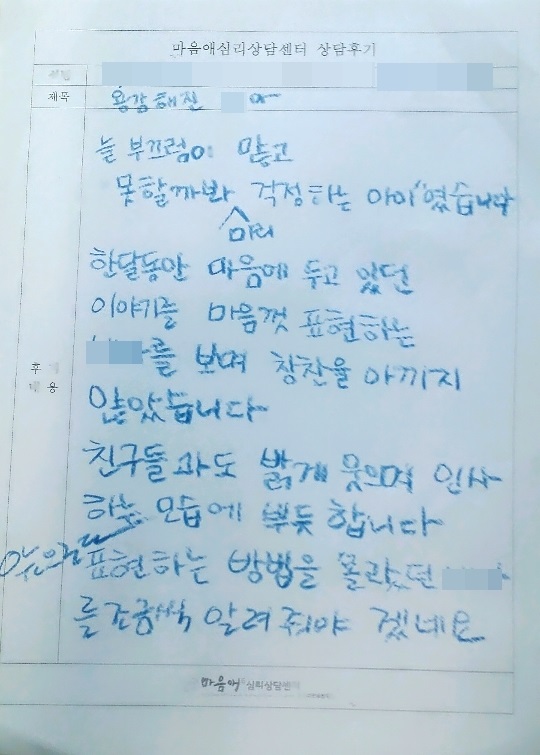 마음애심리상담센터 상담후기
제목 용감해진
늘 부끄럼이 많고
못할까봐 걱정하는 아이"였습니다
미리
한달동안 마음에 두고 있던
이야기를 마음껏 표현하는
를 보며 칭찬을 아끼지
후기
내용
않았습니다
친구들과도 밝게 웃으며 인사
하는 모습에 뿌듯 합니다
앞으로 표현하는 방법을 몰랐던
를 조금씩 알려 줘야 겠네요
마음애 심리상담센터